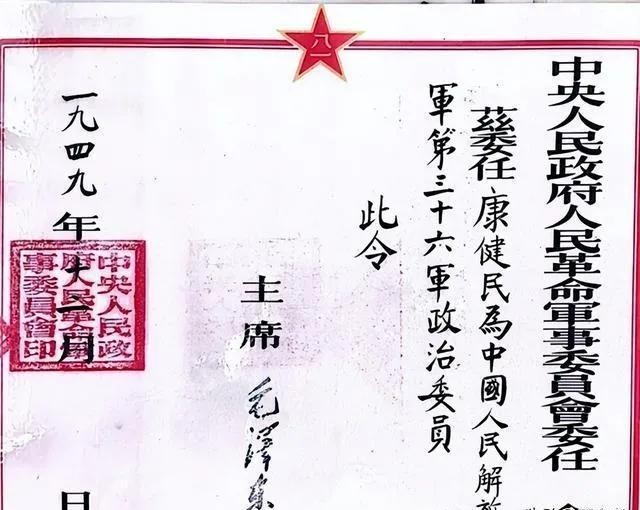 八一
中央人民政府人民革命軍事委員會委任
茲委任康健民為中國人民解放
軍第三十六軍政治委員
此令
主席
毛澤東
一九四九年十一月
日
中央人民政
府人民革命軍
事委員會印